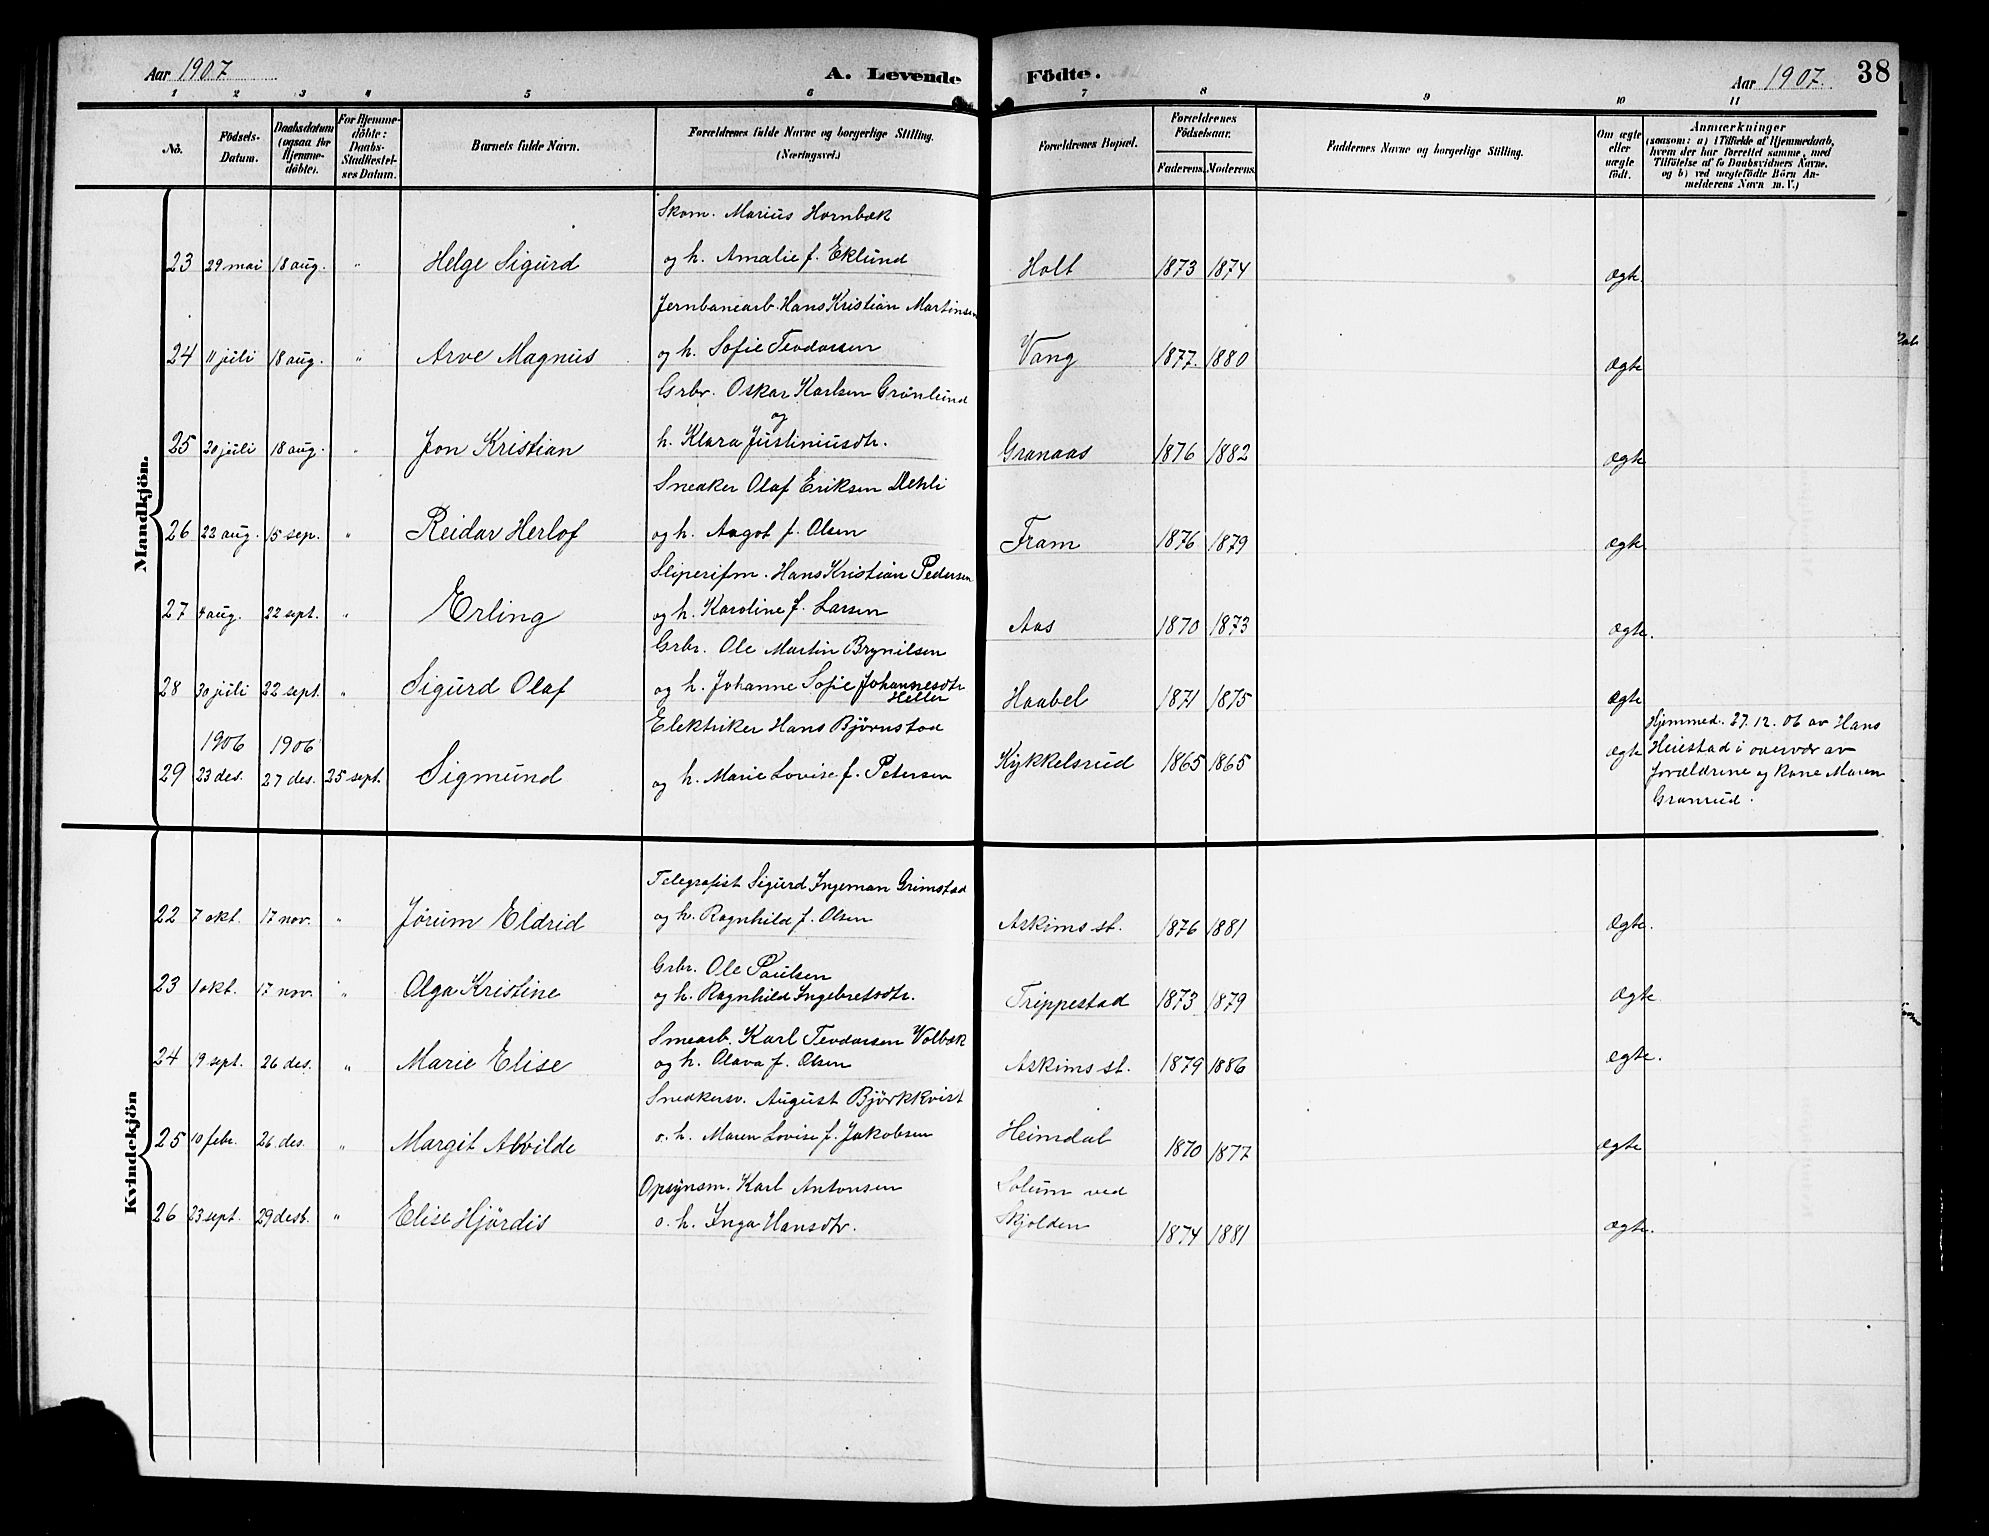 Aar 1907
A. Levende
Födte.
Aar 1907.
38
1 2 3 4 5 6 7 8 9 10 11
No.
Födsels-
Datum.
Daabsdatum
(ogsaa for
Hjemme-
döbte).
For Hjemme-
döbte:
Daabs-
Stadfæstel-
ses Datum.
Barnets fulde Navn.
Forældrenes fulde Navne og borgerlige Stilling.
(Næringsvei.)
Forældrenes Bopæl.
Forældrenes
Födselsaar.
Faderens. Moderens.
Faddernes Navne og borgerlige Stilling.
Om ægte
eller
uægte
födt.
Anmærkninger
(saasom: a) i Tilfælde af Hjemmedaab,
hvem der har forrettet samme, med
Tilföielse af to Daabsvidners Navne.
og b) ved uægtefödte Börn An-
melderens Navn m. V.)
Mandkjön.
Skom. Marius Hornbæk
23 29 mai 18 aug. " Helge Sigurd og h. Amalie f. Eklund Holt 1873 1874 ægte.
Jernbanearb. Hans Kristian Martinsen
24 11 juli 18 aug. " Arve Magnus og h. Sofie Teodorsen Vang 1877. 1880 ægte
Grbr. Oskar Karlsen Grönlund
og
25 20 juli 18 aug. " Jon Kristian h. Klara Justiniusdtr. Granaas 1876 1882 ægte
Snedker Olaf Eriksen Dehli
26 22 aug. 15 sep. " Reidar Herlof og h. Aagot f. Olsen Fram 1876 1879 ægte
Sliperifm. Hans Kristian Pedersen
27 4 aug. 22 sept. " Erling og h. Karoline f. Larsen Aas 1870 1873 ægte.
Grbr. Ole Martin Brynilsen
28 30 juli 22 sept. " Sigurd Olaf og h. Johanne Sofie Johannesdtr Haabel 1871 1875 ægte
Heller
Elektriker Hans Björnstad
1906 1906
29 23 des. 27 des. 25 sept. Sigmund og h. Marie Lovise f. Petersen Kykkelsrud 1865 1865 ægte
Hjemmed. 27.12.06 av Hans
Heiestad i overvær av
forældrene og kone Maren
Granrud.
Kvindekjön
Telegrafist Sigurd Ingeman Grimstad
22 7 okt. 17 nov. " Jorum Eldrid og h. Ragnhild f. Olsen Askims st. 1876 1881 ægte.
Grbr. Ole Paulsen
23 1 okt. 17 nov. " Olga Kristine og h. Ragnhild Ingebretsdtr. Trippestad 1873 1879 ægte.
Smearb. Karl Teodorsen Volbæk
24 19 sept. 26 des. " Marie Elise og h. Olava f. Olsen Askims st. 1879 1886 ægte.
Snedkersv. August Björkkvist
25 10 febr. 26 des. " Margit Alvilde o. h. Maren Lovise f. Jakobsen Heimdal 1870 1877 ægte
Opsynsm. Karl Antonsen Solum ved
26 23 sept. 29 desb. " Elise Hjördis o. h. Inga Hansdtr. Skjolden 1874 1881 ægte.